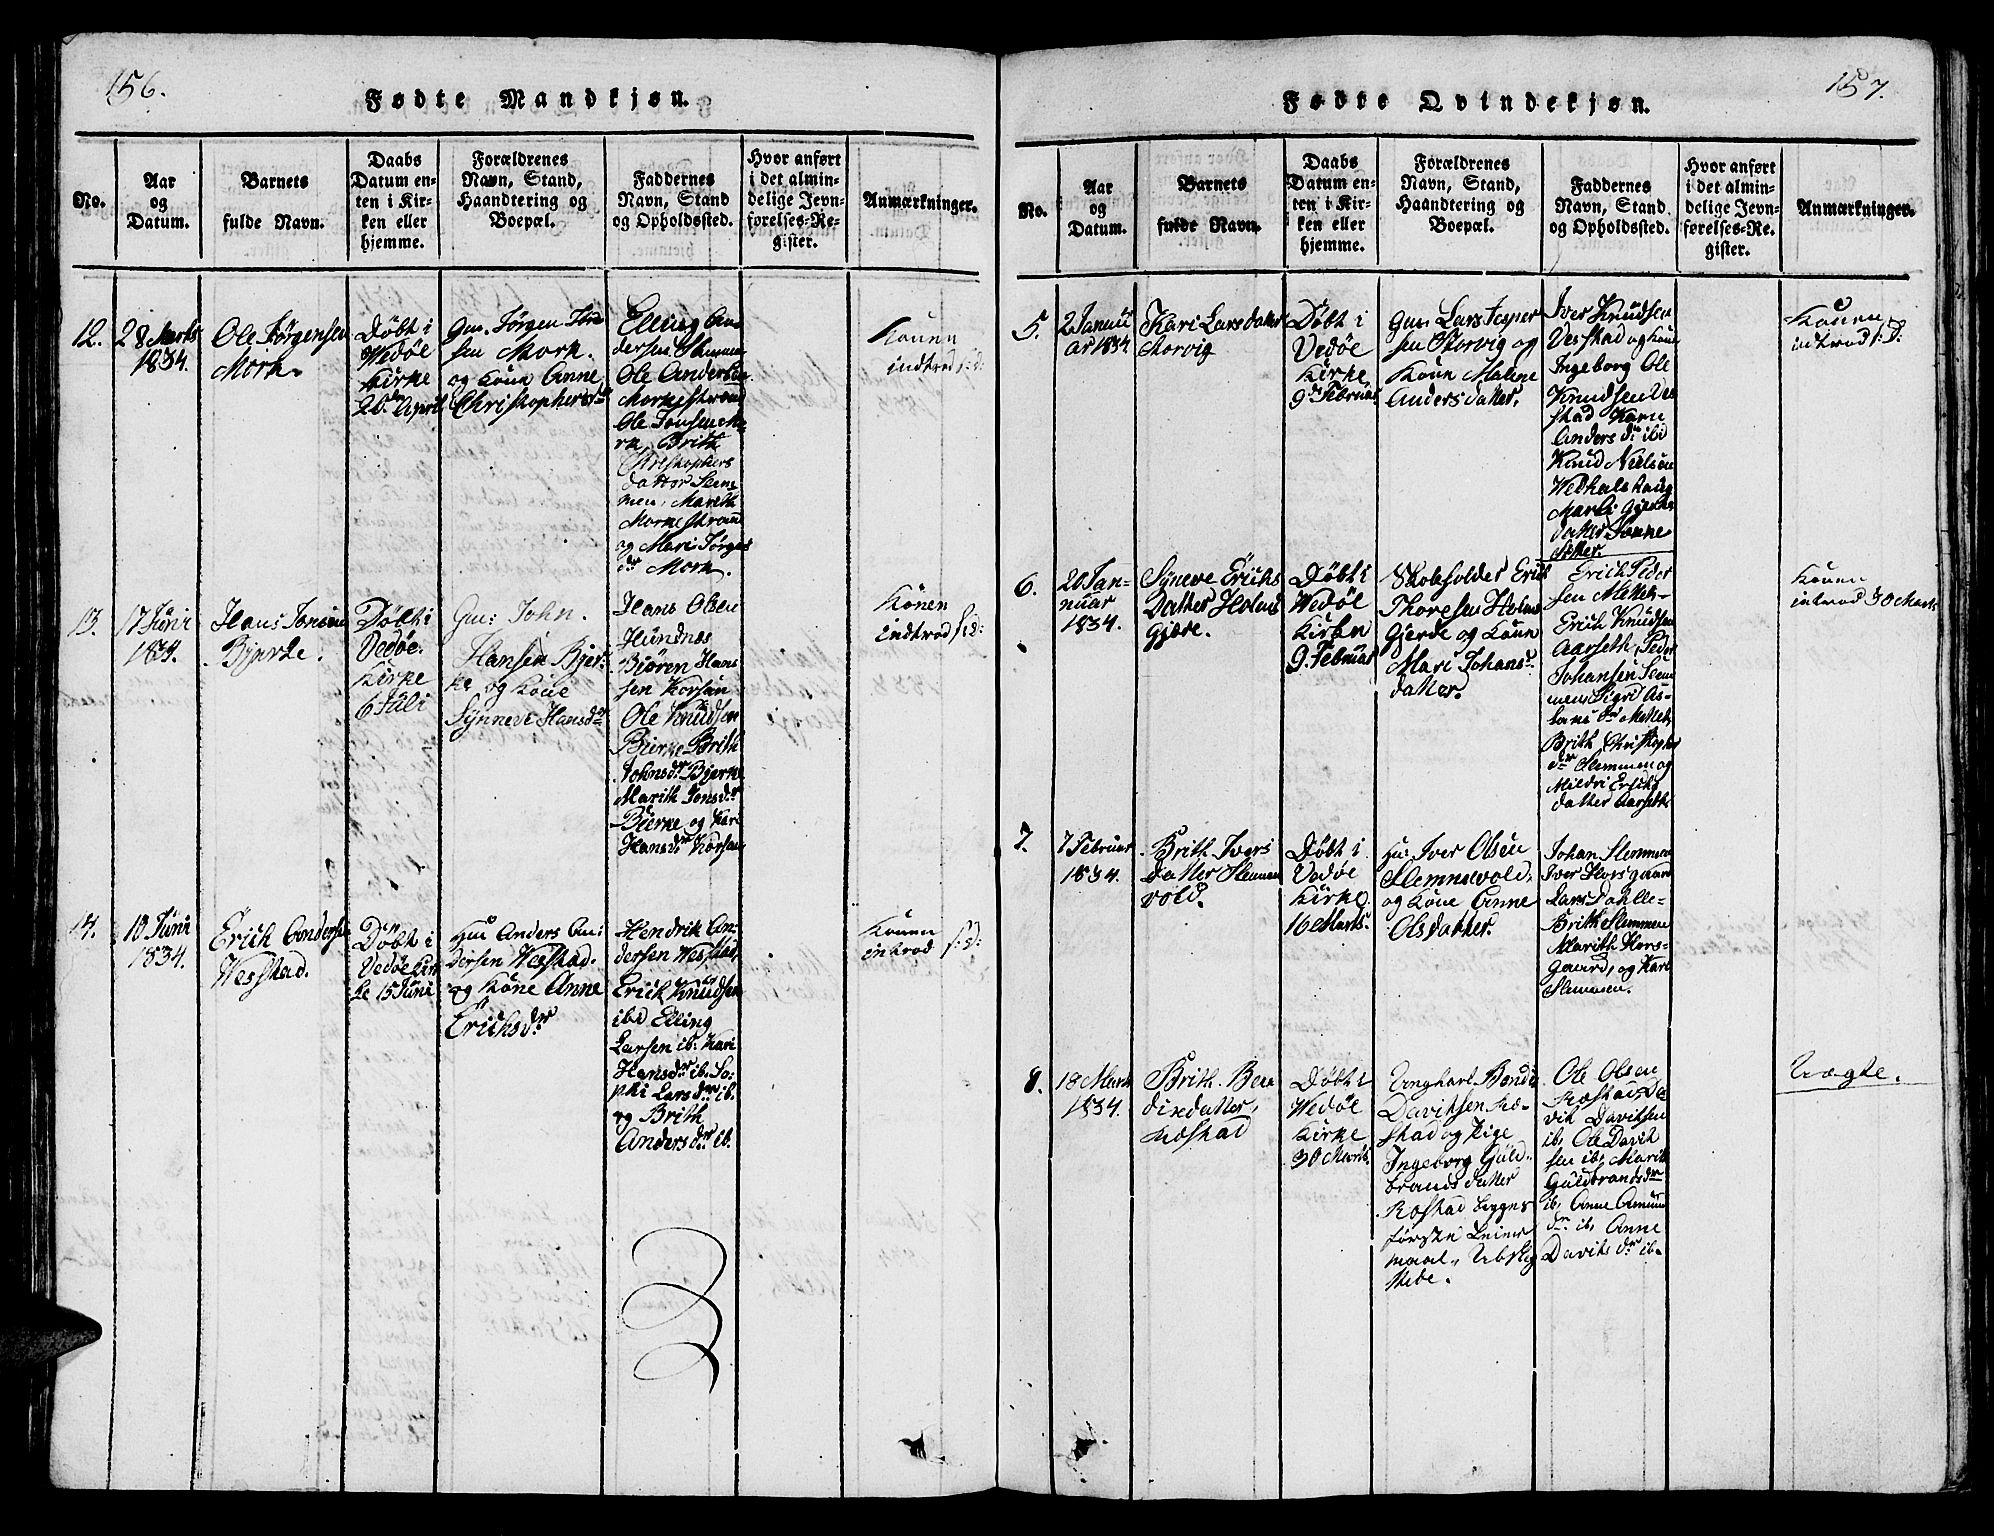 156.
Fødte Mandkjøn.
No.
Aar
og
Datum.
Barnets
fulde Navn.
Daabs
Datum en-
ten i Kir-
ken eller
hjemme.
Forældrenes
Navn, Stand,
Haandtering og
Boepæl.
Faddernes
Navn, Stand
og Opholdssted.
Hvor anført
i det almin-
delige Jevn-
førelses-Re-
gister.
Anmærkninger.
12.
28 Marts
1834.
Ole Jørgensen
Mork.
Døbt i
Wedøe
Kirke
20de April
Gm. Jørgen
sen Mork.
og Kone Anne
Christophersdr
Elling An-
dersen Slemmen
Ole Andersen
Morkestrand
Ole Jonsen Mo-
rk, Brith
Christophers
datter Slem-
men, Marith
Morkestrand
og Mari Jørgens
dr Mork.
Konen
indtrod s: d:
13.
17 Juni
1834.
Hans Jonsen
Bjerke.
Døbt i
Vedøe
Kirke
6 Juli
Gm: John.
Hansen Bjer-
ke og Kone
Synnevi Hansdr
Hans Olsen
Hundnes
Bjøren Hans
sen Korsen
Ole Knudsen
Bierke Brith
Johnsdr Bjerke
Marith Jonsdr
Bierke og Kari
Hansdr Korsen
Konen
indtrod s: d:
14.
10 Juni
1834.
Erich Andersen
Wesstad.
Døbt i
Vedøe Kir
ke 15 Juni
Hm Anders An-
dersen Wesstad.
og Kone Anne
Erichsdr
Hendrik An-
dersen Wesstad,
Erick Knudsen
ibd Elling
Larsen ib: Kari
Hansdr ib. So-
phi Larsdr ib.
og Brith
Andersdr ib.
Konen
introd s: d:
157.
Fødte Qvindekjøn.
No.
Aar
og
Datum.
Barnets
fulde Navn.
Daabs
Datum en-
ten i Kir-
ken eller
hjemme.
Forældrenes
Navn, Stand,
Haandtering og
Boepæl.
Faddernes
Navn, Stand
og Opholdssted.
Hvor anført
i det almin-
delige Jevn-
førelses-Re-
gister.
Anmærkninger.
5.
2 Janu
ar 1834
Kari Larsdatter
Storvig
Døbt i
Vedøe
Kirke
9de Februar
Gm Lars Jesper
sen Storvig og
Kone Malene
Andersdatter.
Iver Knudsen
Vesstad og Kone
Ingeborg Ole
Knudsen Ves
stad Karn
Anders dr ibd
Knud Nielsen
datter
Konen
indtrod s: d:
6.
20 Jan-
nuar
1834.
Syneve Erichs
Datter Holms
Gjære.
Døbt i
Wedøe
Kirken
9. Februar
Skoleholder Erich
Thoresen Holms
Gjerde og Kone
Mari Johans
datter.
Erich Peder
sen
Erich Knudsen
Aarseth, Peder
Johansen Slem
men
Brith Christopher
dr Slemmen og
Mildri Erichs
datter Aarseth.
Konen
introd 30 Marts
7.
7 Februar
1834.
Brith Ivers
datter Slemmen
vold.
Døbt i
Vedøe
Kirke
16 Marts.
Hm: Iver Olsen
Slemnevold,
og Kone Anne
Olsdatter.
Johan Slemmen
Iver Horsgaard
Lars Dahlle-
Brith Slemmen
Marith Hors-
gaard, og Kari
Slemmen.
8.
18 Marts
1834.
Brith Ben
dixdatter,
Røstad
Døbt i
Wedøe
Kirke
30 Marts.
Ungkarl Bendix
Davitsen Rø-
stad og Pige
Ingeborg Guld-
brandsdatter
Røstad begges
første Leier-
maal.
Ole Olsen
Røstad, Da
vik Davitsen
ib, Ole Davit
sen ib, Marith
Guldbrandsdr
ib, Anne Amun
dr ib, Anne
Davits dr ib.
Uægte.